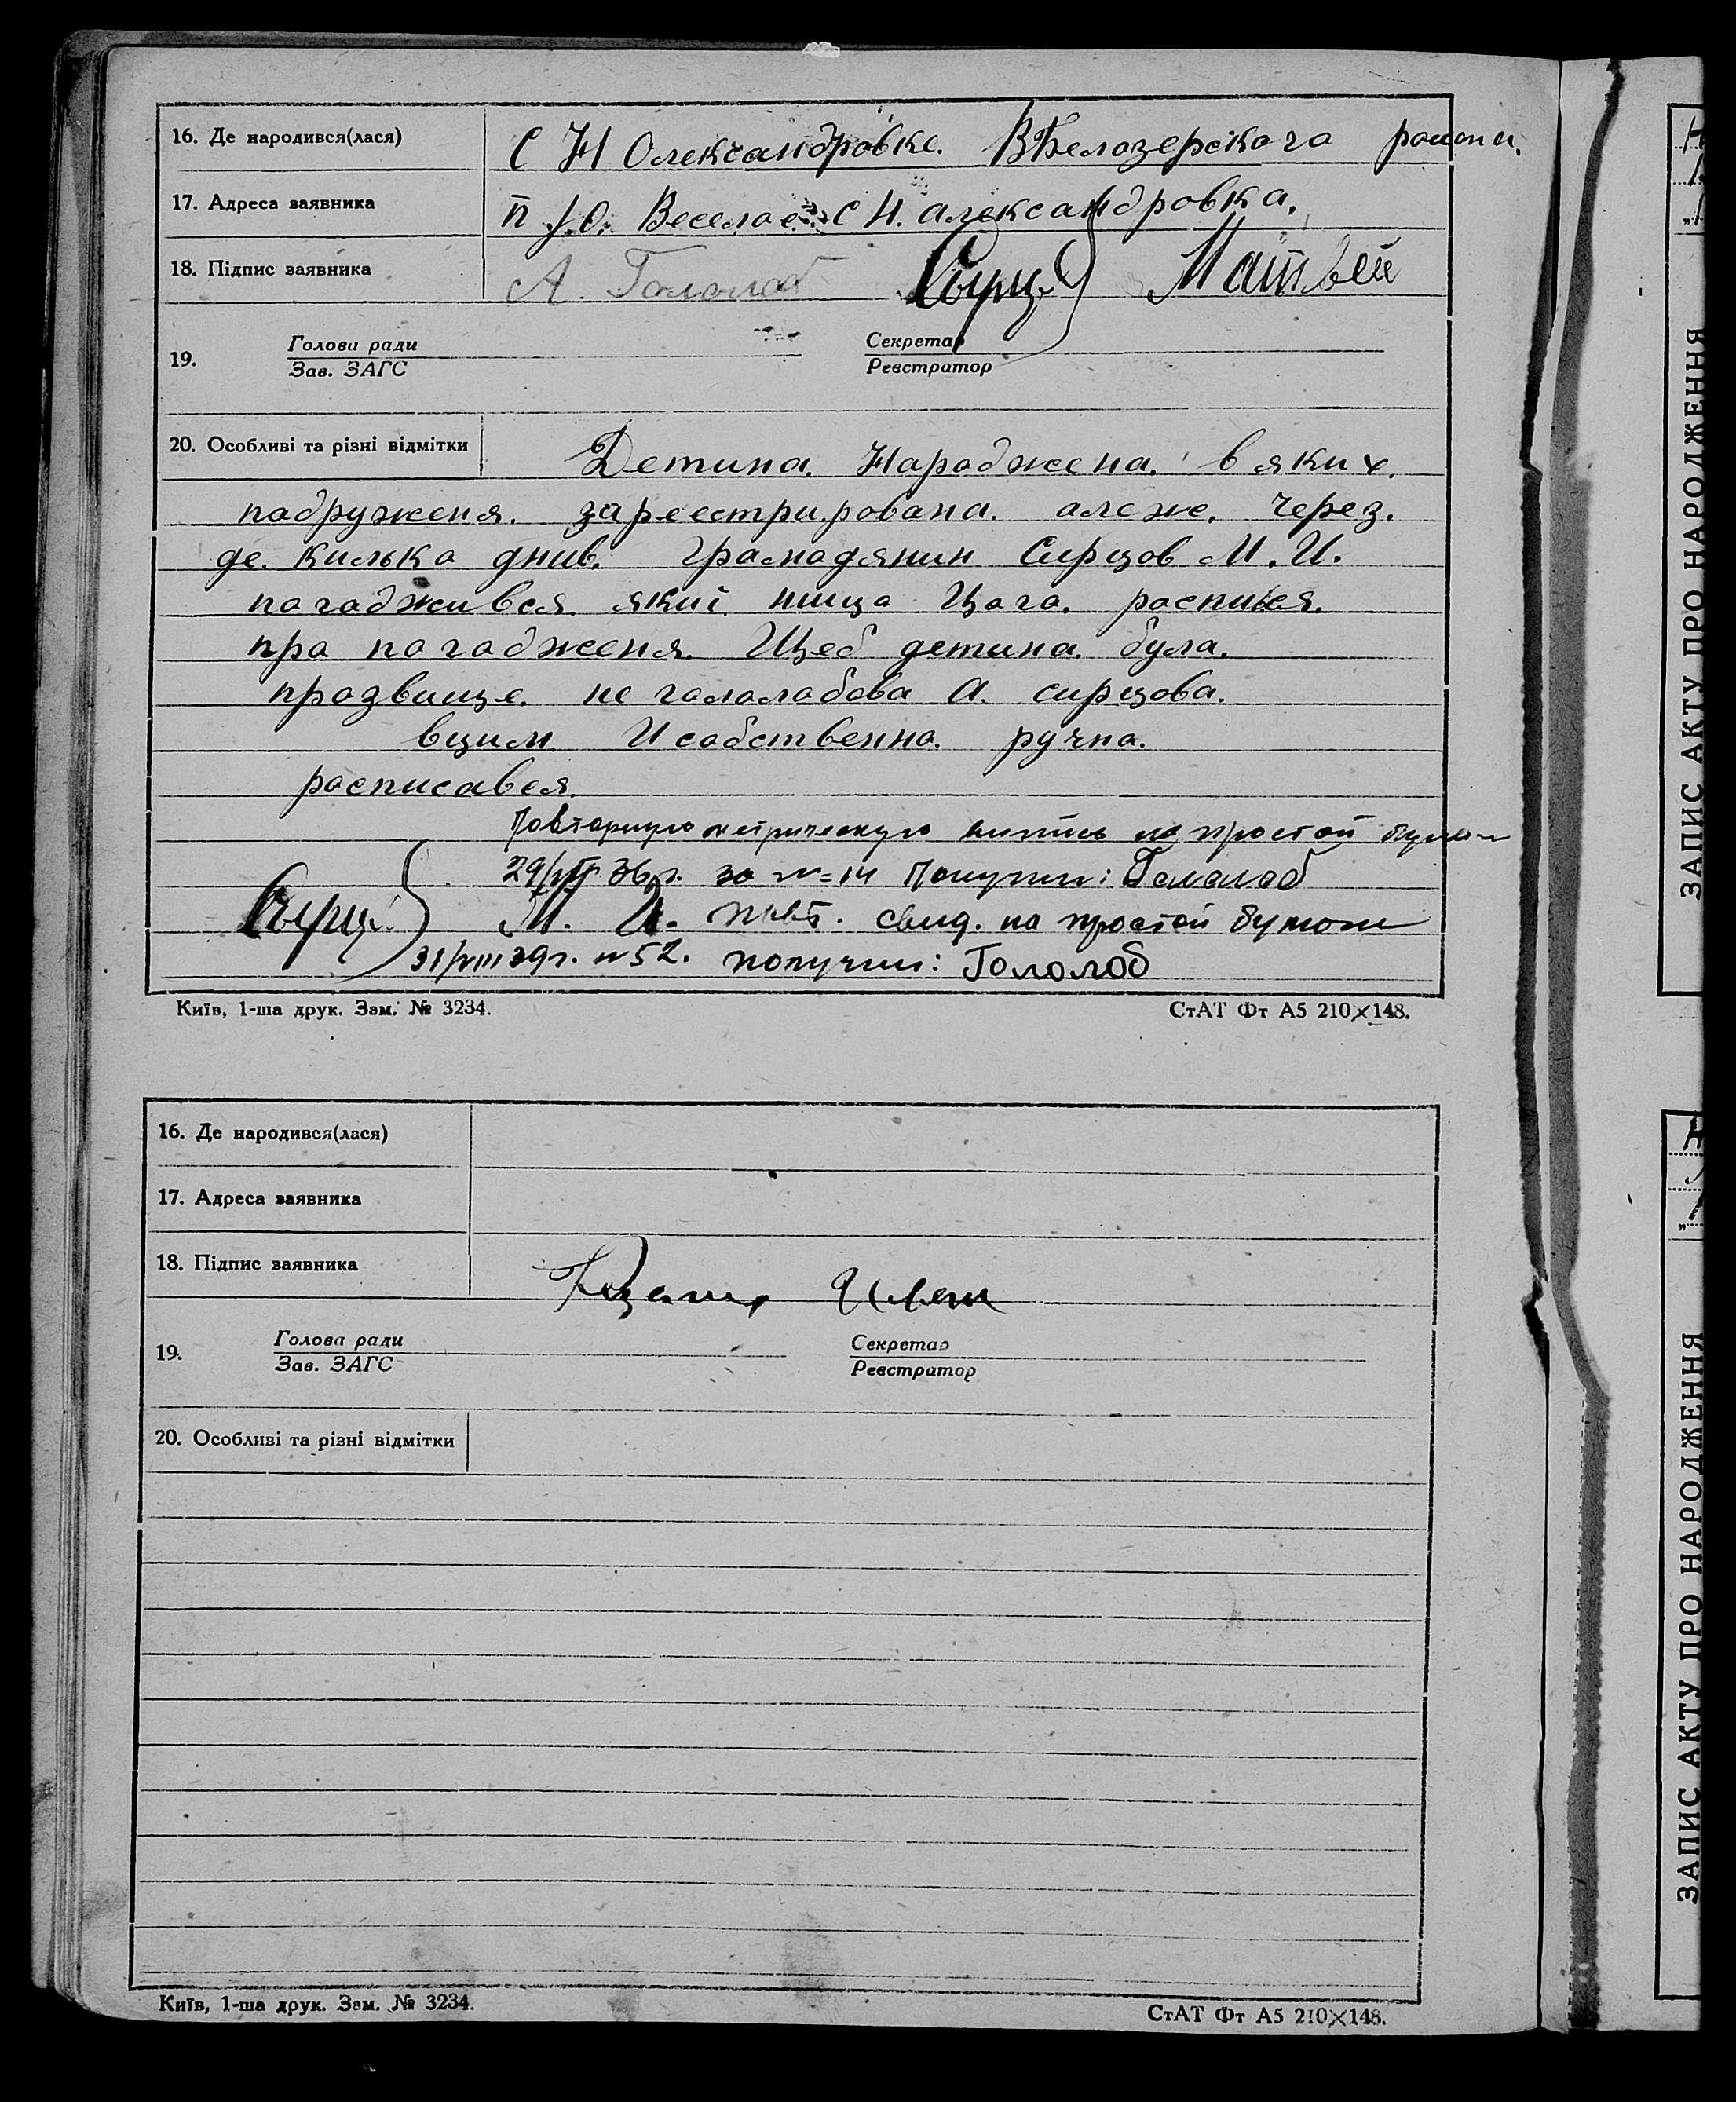 16. Де народився(лася) С Н Олександровке. ВБелозерскога района.
17. Адреса заявника п/о. Веселое. с Н. александровка.
18. Підпис заявника А. Гололоб Сырц. Матвей
19. Голова ради Секретар
Зав. ЗАГС Реєстратор
20. Особливі та різні відмітки Детина. Народжена. в яких.
падруженя. зареестрирована. алеже. через.
де. килька днив. Грамадянин Сирцов М. И.
пагадживея. який. нища Цаго. распився.
пра пагадженя. Щеб детина. була.
празвище. не галалобова А. сирцова.
вцим. И собственна. ручна.
расписався.
Повторную метрическую выпись на простой бумаге
29/VII 36 г. за №=14 Получил: Гололоб
Сырц. М. И. Повт. свид. на простой бумаге
31/VIII 39 г. №52. получил: Гололоб
Київ, 1-ша друк. Зам. № 3234. СтАТ Фт А5 210×148.
16. Де народився(лася)
17. Адреса заявника
18. Підпис заявника
19. Голова ради Секретар
Зав. ЗАГС Реєстратор
20. Особливі та різні відмітки
Київ, 1-ша друк. Зам. № 3234. СтАТ Фт А5 210×148.
ЗАПИС АКТУ ПРО НАРОДЖЕННЯ
ЗАПИС АКТУ ПРО НАРОДЖЕННЯ